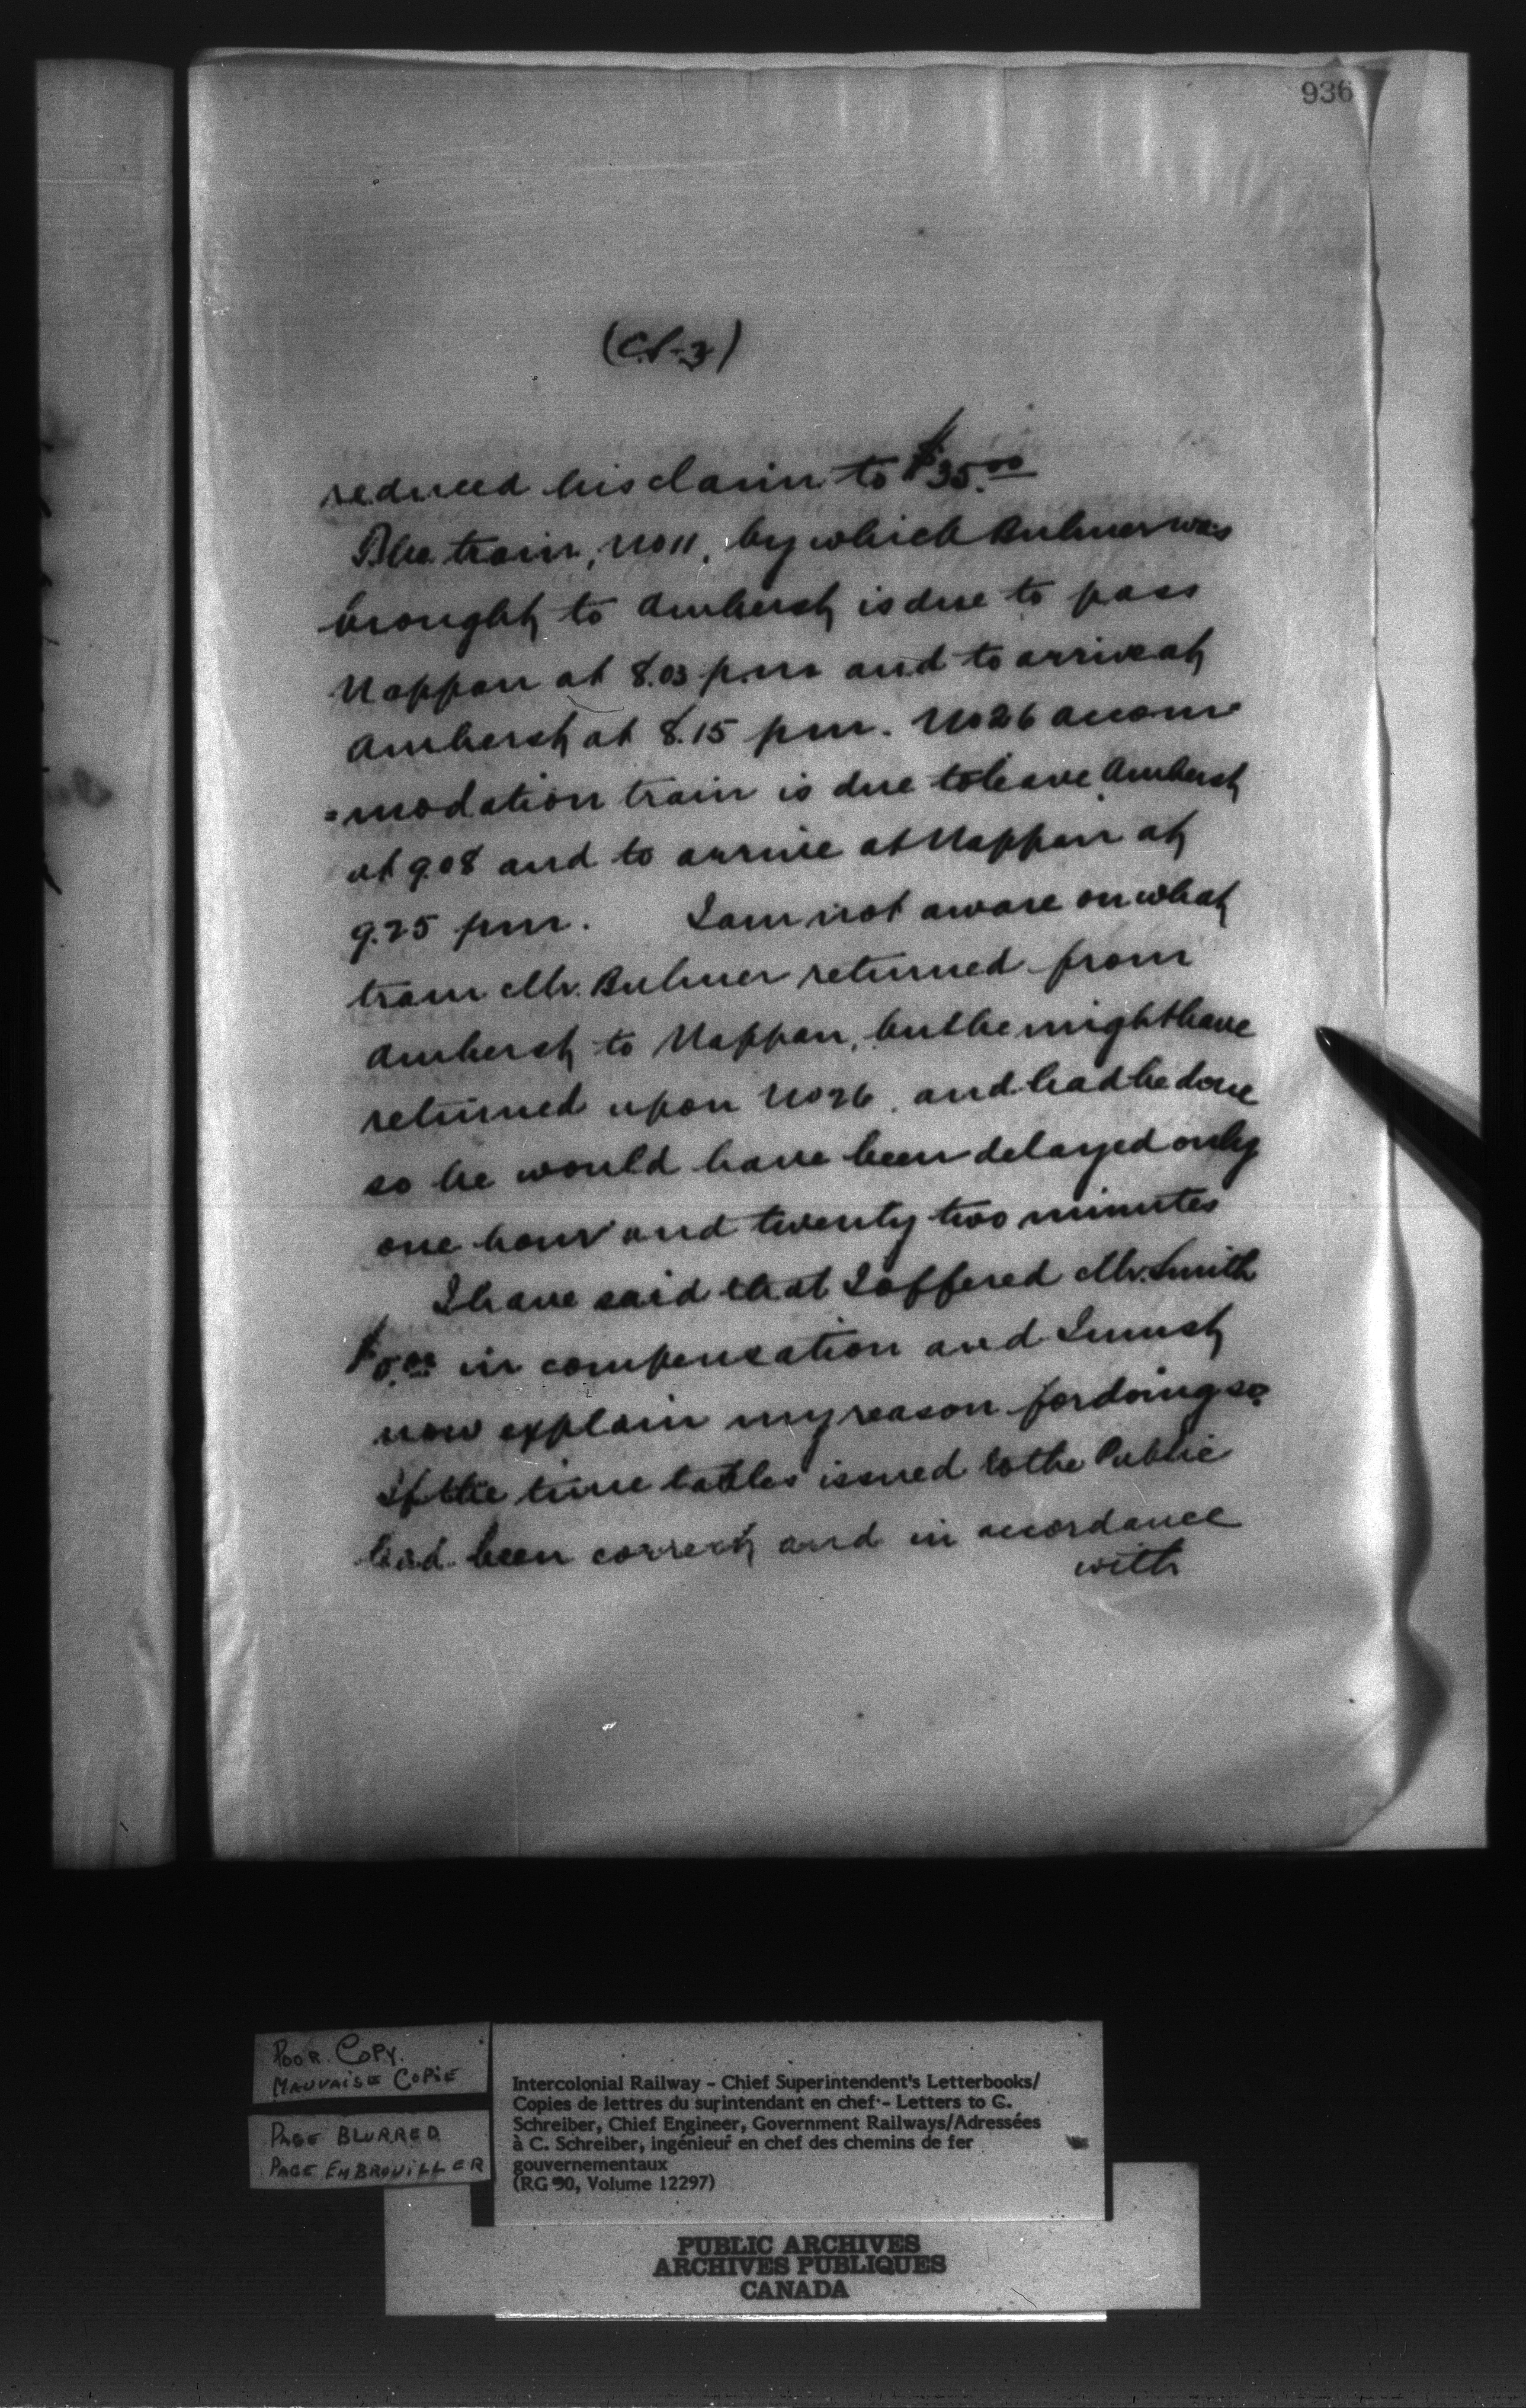 936
(C.S-3)
reduced his claim to $35.00
The train, No 11, by which Bulmer was
brought to Amherst is due to pass
Nappan at 8.03 p.m and to arrive at
Amherst at 8.15 pm. No 26 accom
=modation train is due to leave Amherst
at 9.08 and to arrive at Nappan at
9.25 pm. I am not aware on what
train Mr. Bulmer returned from
Amherst to Nappan, but he might have
returned upon No 26, and had he done
so he would have been delayed only
one hour and twenty two minutes
I have said that I offered Mr. Smith
$5.00 in compensation and I must
now explain my reason for doing so.
If the time tables issued to the Public
had been correct and in accordance
with
POOR COPY.
MAUVAISE COPIE
PAGE BLURRED
PAGE EMBROUILLER
Intercolonial Railway - Chief Superintendent's Letterbooks/
Copies de lettres du surintendant en chef - Letters to G.
Schreiber, Chief Engineer, Government Railways/Adressées
à C. Schreiber, ingénieur en chef des chemins de fer
gouvernementaux
(RG 30, Volume 12297)
PUBLIC ARCHIVES
ARCHIVES PUBLIQUES
CANADA